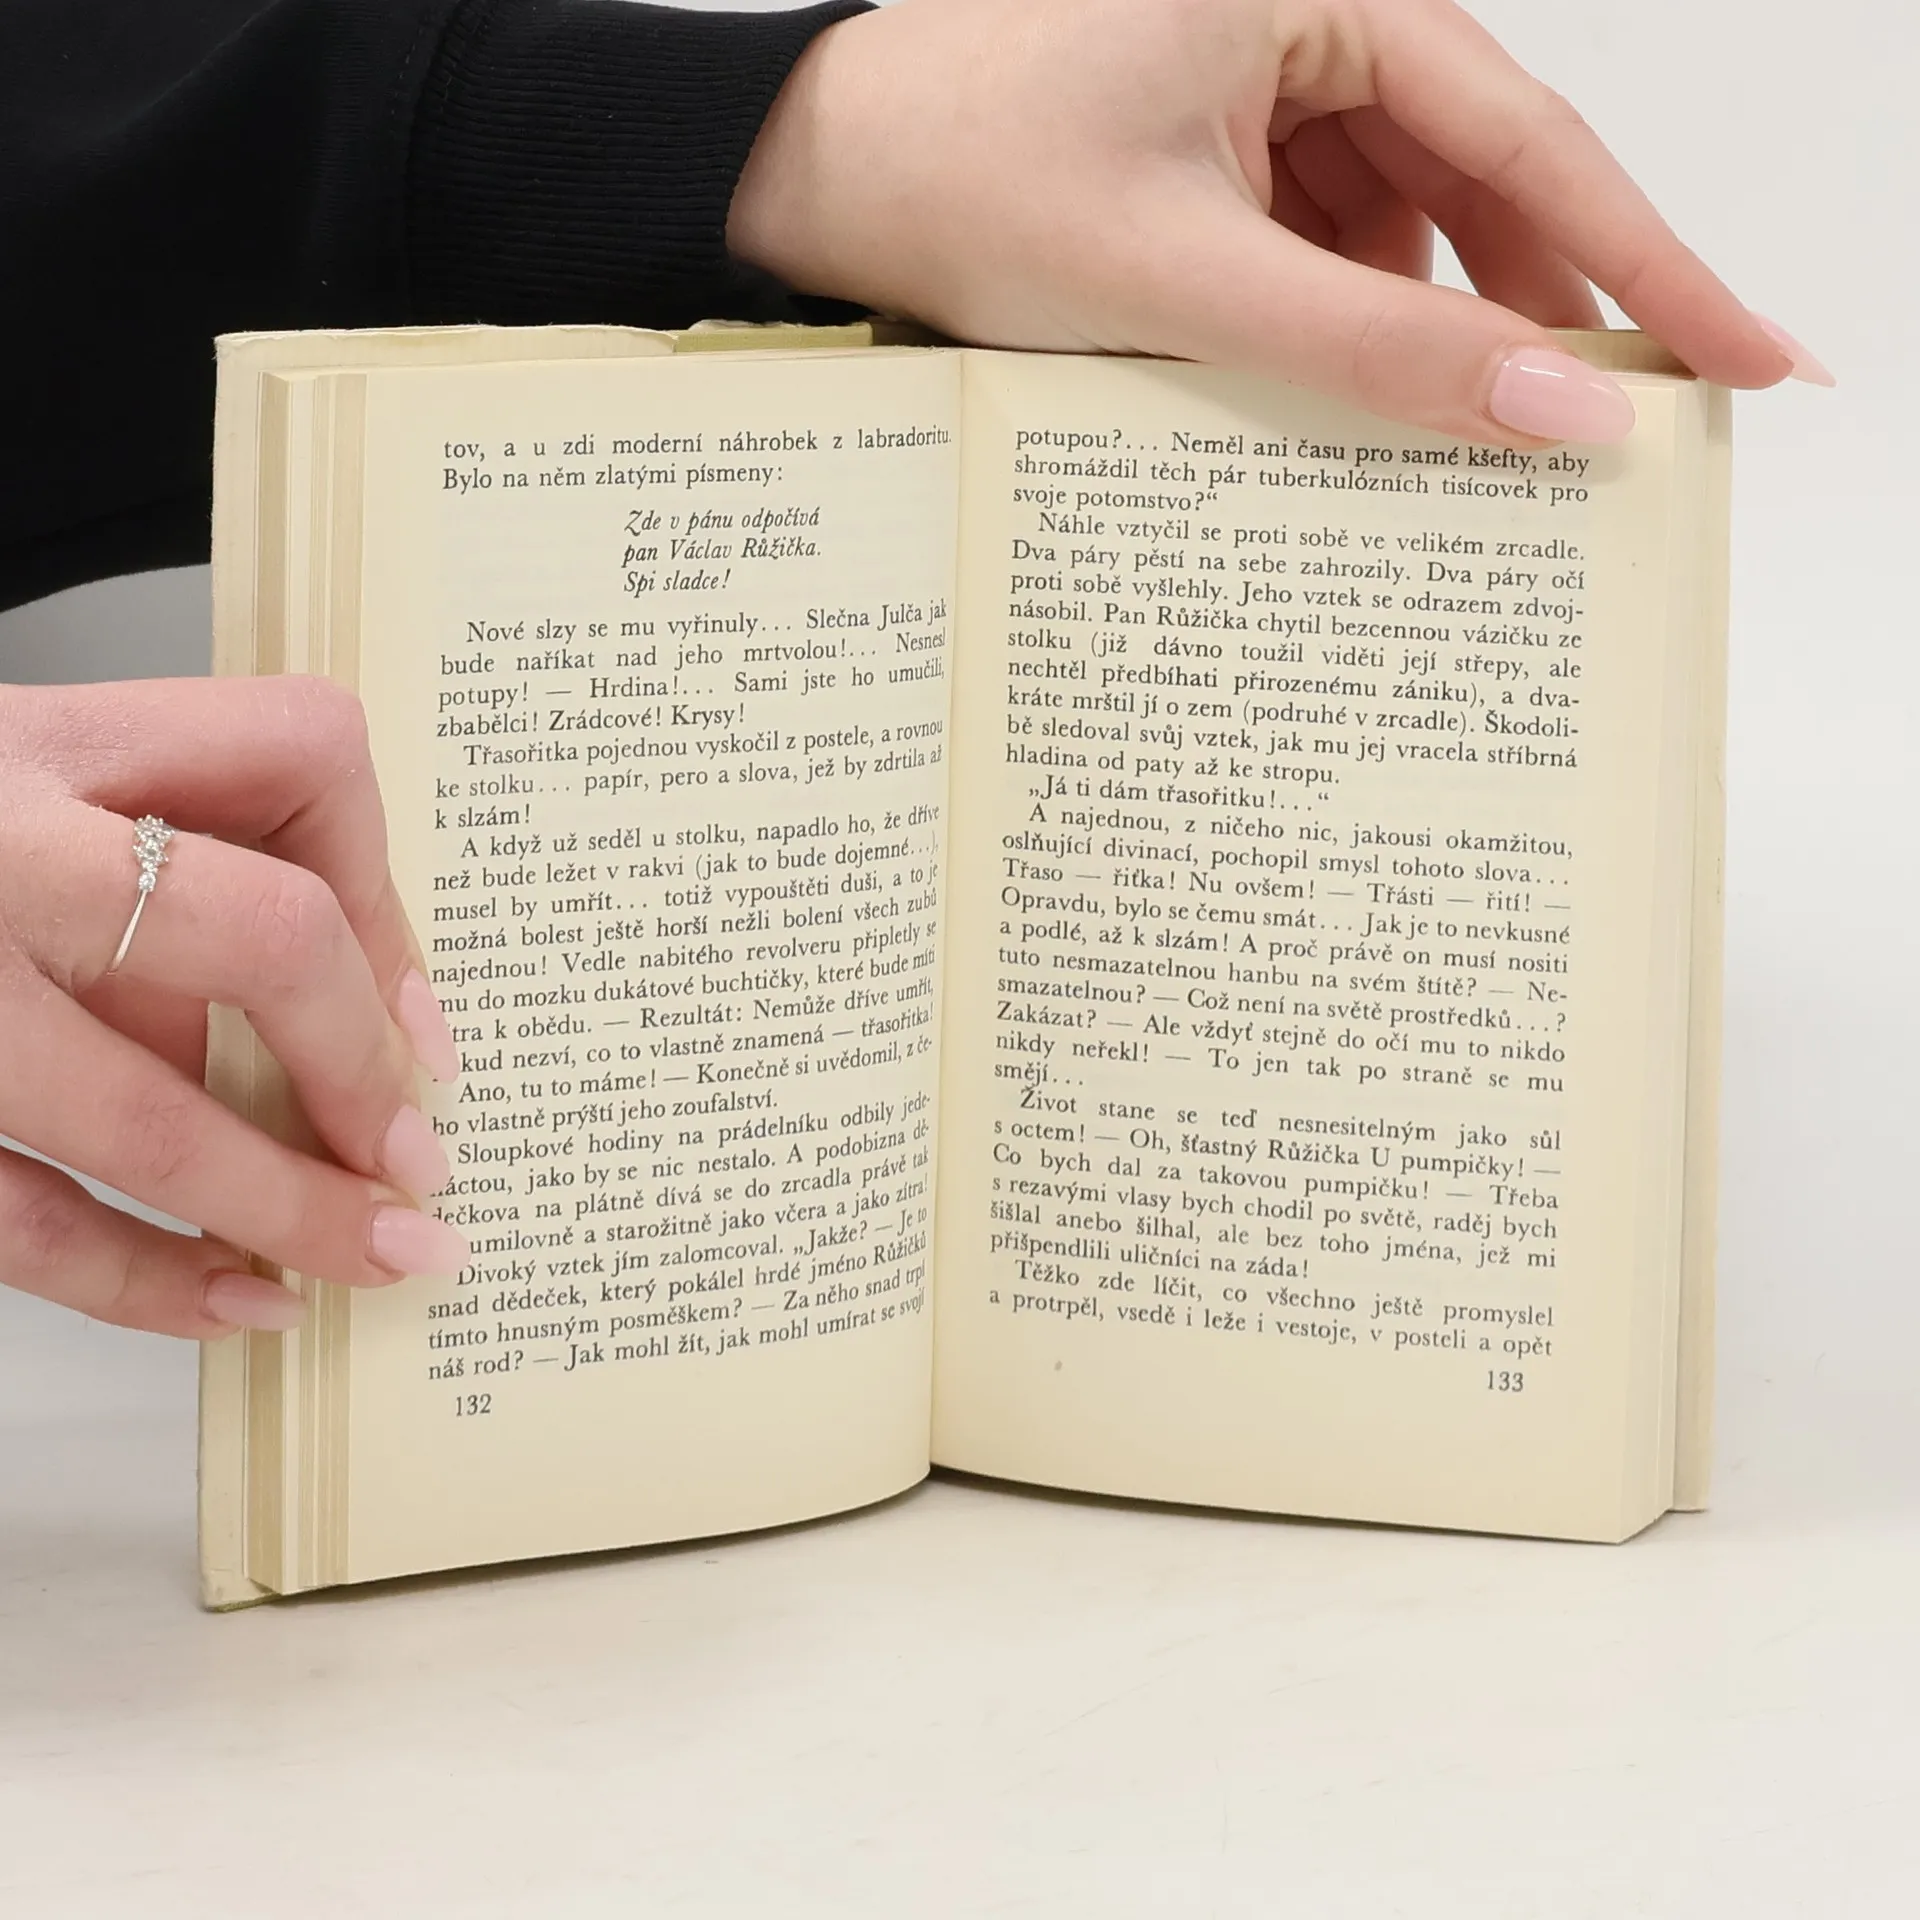 tov, a u zdi moderní náhrobek z labradoritu.
Bylo na něm zlatými písmeny:
Zde v pánu odpočívá
pan Václav Růžička.
Spi sladce!
Nové slzy se mu vyřinuly... Slečna Julča jak
bude naříkat nad jeho mrtvolou!... Nesnesl
potupy! — Hrdina!... Sami jste ho umučili,
zbabělci! Zrádcové! Krysy!
Třasořitka pojednou vyskočil z postele, a rovnou
ke stolku... papír, pero a slova, jež by zdrtila až
k slzám!
A když už seděl u stolku, napadlo ho, že dříve
než bude ležet v rakvi (jak to bude dojemné...),
musel by umřít... totiž vypouštěti duši, a to je
možná bolest ještě horší nežli bolení všech zubů
najednou! Vedle nabitého revolveru připletly se
mu do mozku dukátové buchtičky, které bude míti
k obědu. — Rezultát: Nemůže dříve umřít,
nezví, co to vlastně znamená — třasořitka!
Ano, tu to máme! — Konečně si uvědomil, z če-
ho vlastně prýští jeho zoufalství.
Sloupkové hodiny na prádelníku odbily jede-
náctou, jako by se nic nestalo. A podobizna dě-
dečkova na plátně dívá se do zrcadla právě tak
umilovně a starožitně jako včera a jako zítra!
Divoký vztek jím zalomcoval. „Jakže? — Je to
snad dědeček, který pokálel hrdé jméno Růžičků
tímto hnusným posměškem? — Za něho snad trpí
náš rod? — Jak mohl žít, jak mohl umírat se svojí
132
potupou?... Neměl ani času pro samé kšefty, aby
shromáždil těch pár tuberkulózních tisícovek pro
svoje potomstvo?“
Náhle vztyčil se proti sobě ve velikém zrcadle.
Dva páry pěstí na sebe zahrozily. Dva páry očí
proti sobě vyšlehly. Jeho vztek se odrazem zdvoj-
násobil. Pan Růžička chytil bezcennou vázičku ze
stolku (již dávno toužil viděti její střepy, ale
nechtěl předbíhati přirozenému zániku), a dva-
kráte mrštil jí o zem (podruhé v zrcadle). Škodoli-
bě sledoval svůj vztek, jak mu jej vracela stříbrná
hladina od paty až ke stropu.
„Já ti dám třasořitku!...“
A najednou, z ničeho nic, jakousi okamžitou,
oslňující divinací, pochopil smysl tohoto slova...
Třaso — řiťka! Nu ovšem! — Třásti — řití! —
Opravdu, bylo se čemu smát... Jak je to nevkusné
a podlé, až k slzám! A proč právě on musí nositi
tuto nesmazatelnou hanbu na svém štítě? — Ne-
smazatelnou? — Což není na světě prostředků...?
Zakázat? — Ale vždyť stejně do očí mu to nikdo
nikdy neřekl! — To jen tak po straně se mu
smějí...
Život stane se teď nesnesitelným jako sůl
s octem! — Oh, šťastný Růžička U pumpičky! —
Co bych dal za takovou pumpičku! — Třeba
s rezavými vlasy bych chodil po světě, raděj bych
šišlal anebo šilhal, ale bez toho jména, jež mi
přišpendlili uličníci na záda!
Těžko zde líčit, co všechno ještě promyslel
a protrpěl, vsedě i leže i vestoje, v posteli a opět
133